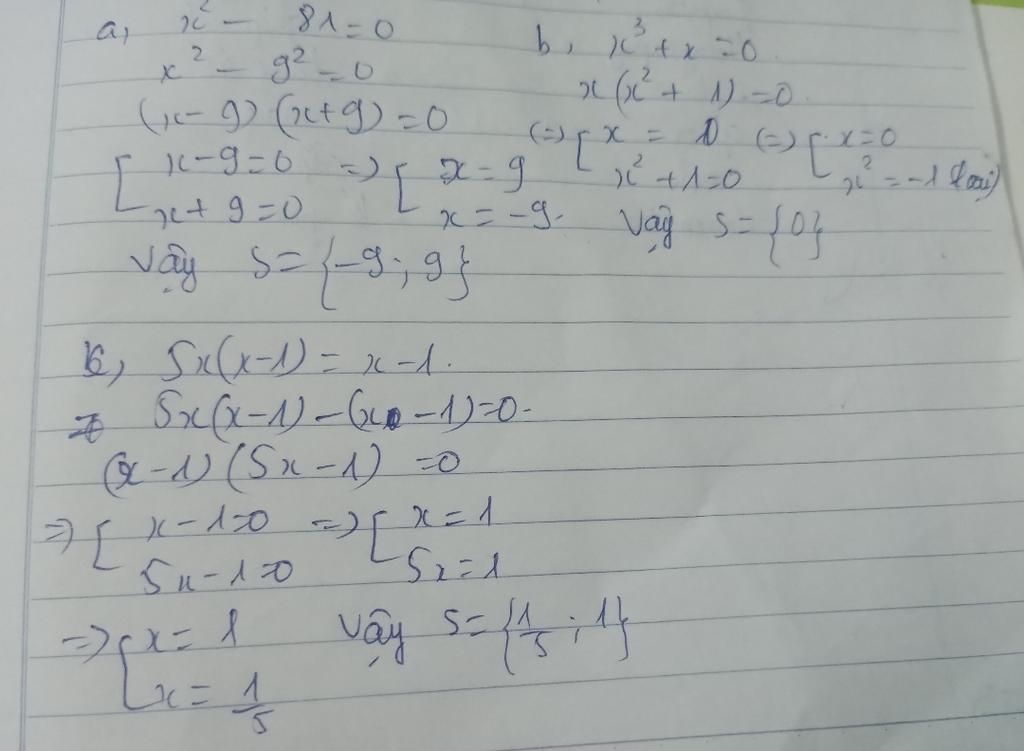 a, x² - 81=0
x² - 9² = 0
(x-9) (x+9) = 0
[ x-9=0 => [ x = 9
x+ 9=0 x = -9.
Vậy S= {-9; 9}
b, x³ + x = 0.
x(x² + 1) = 0.
(=> [ x = 0 (=> [ x=0
x² +1=0 x² = -1 (loại)
Vậy S= {0}
c, 5x(x-1) = x-1.
5x(x-1) - (x-1)=0.
(x-1) (5x-1) =0
=> [ x-1=0 => [ x=1
5x-1=0 5x=1
=> [ x= 1 Vậy S= {1/5; 1}
x= 1/5